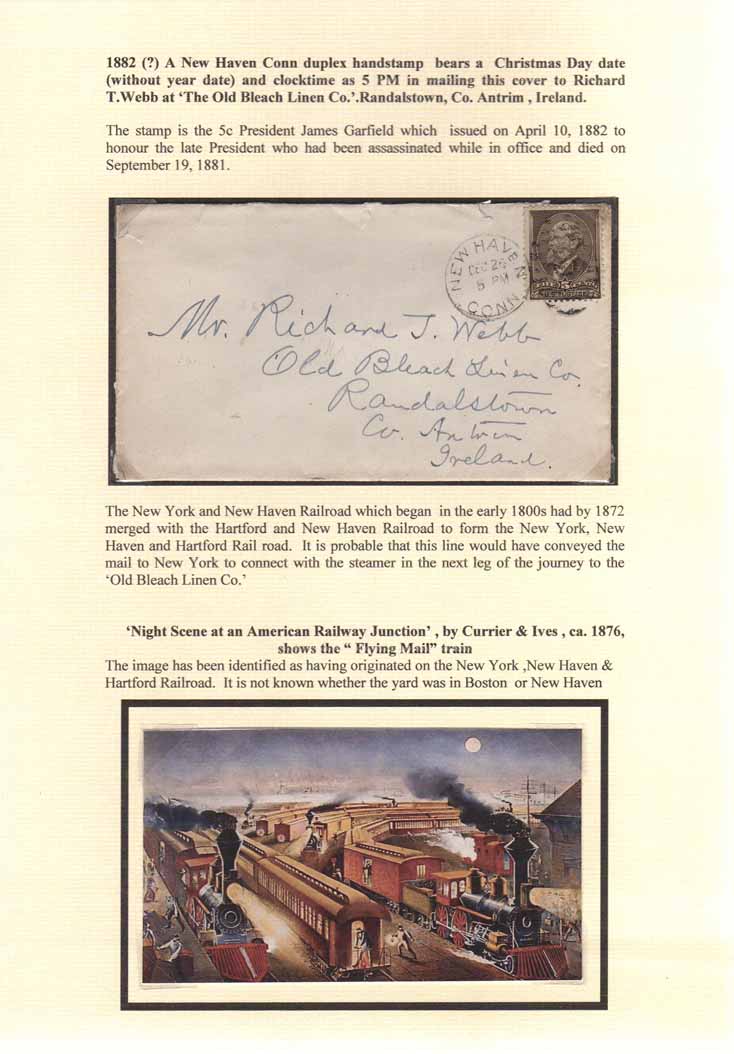 1882 (?) A New Haven Conn duplex handstamp bears a Christmas Day date
(without year date) and clocktime as 5 PM in mailing this cover to Richard
T.Webb at ‘The Old Bleach Linen Co.’.Randalstown, Co. Antrim , Ireland.
The stamp is the 5c President James Garfield which issued on April 10, 1882 to
honour the late President who had been assassinated while in office and died on
September 19, 1881.
NEW HAVEN
DEC 26
PM
CONN
Mr. Richard J. Webb
Old Bleach Linen Co.
Randalstown
Co. Antrim
Ireland.
The New York and New Haven Railroad which began in the early 1800s had by 1872
merged with the Hartford and New Haven Railroad to form the New York, New
Haven and Hartford Rail road. It is probable that this line would have conveyed the
mail to New York to connect with the steamer in the next leg of the journey to the
‘Old Bleach Linen Co.’
‘Night Scene at an American Railway Junction’ , by Currier & Ives , ca. 1876,
shows the “ Flying Mail” train
The image has been identified as having originated on the New York ,New Haven &
Hartford Railroad. It is not known whether the yard was in Boston or New Haven